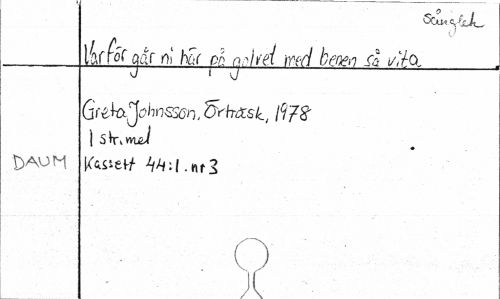 Sånglek
Varför går ni här på golvet med benen så vita
Greta Johnsson, Örträsk, 1978
1 str. mel
DAUM Kassett 44:1. nr 3